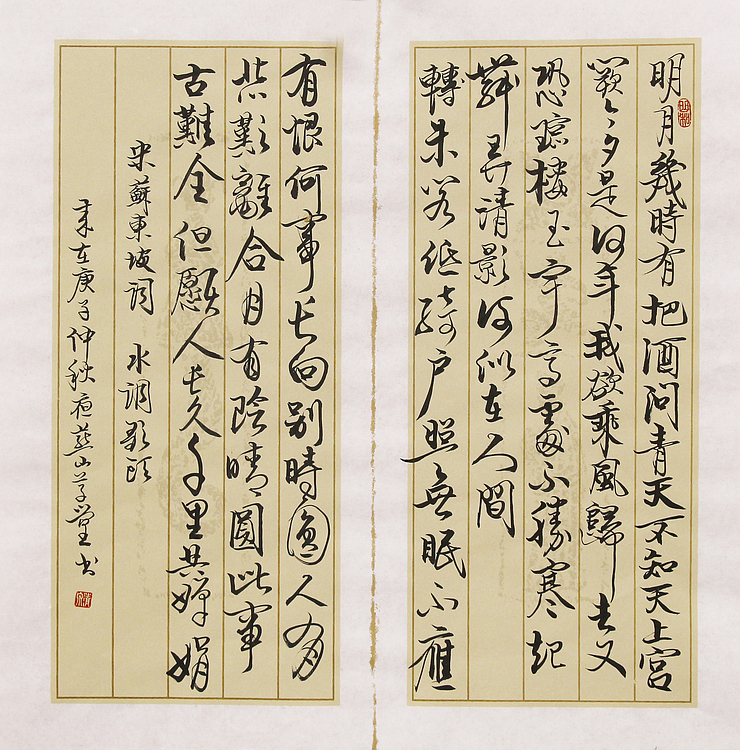 明月幾時有把酒問青天不知天上宮
闕今夕是何年我欲乘風歸去又
恐瓊樓玉宇高處不勝寒起
舞弄清影何似在人間
轉朱閣低綺戶照無眠不應
有恨何事長向別時圓人有
悲歡離合月有陰晴圓此事
古難全但願人長久千里共嬋娟
宋蘇東坡詞 水調歌頭
歲在庚子仲秋夜燕山草堂書